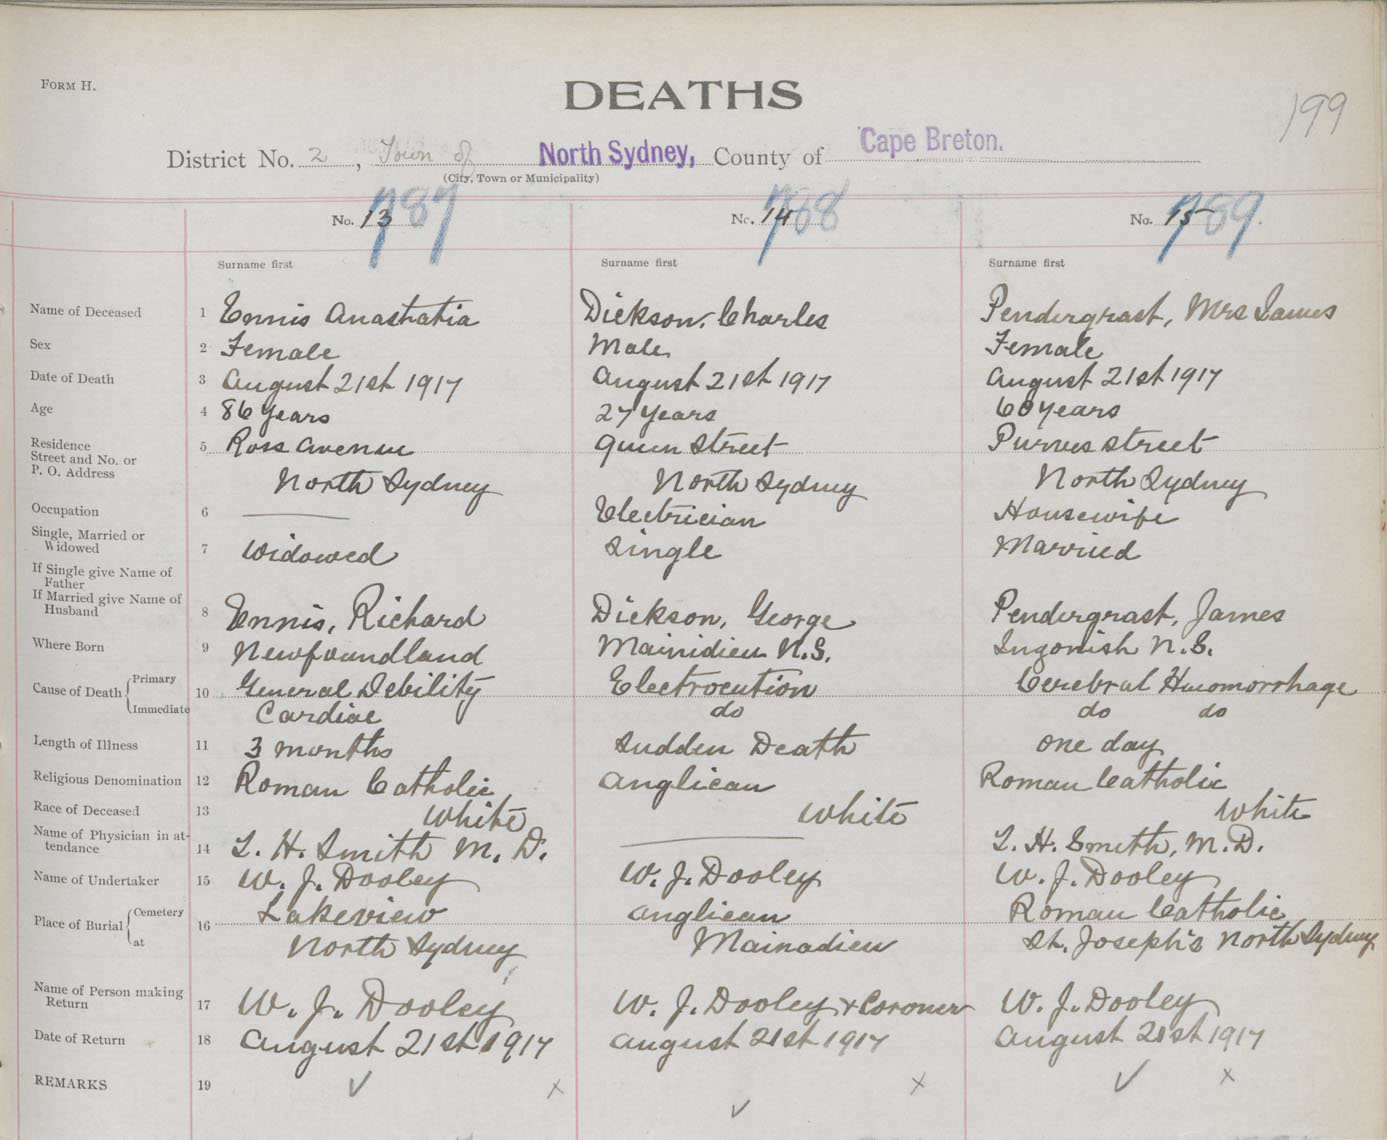 FORM H.
DEATHS
199
District No. 2, Town of North Sydney, County of Cape Breton.
(City, Town or Municipality)
No. 13 787 No. 14 788 No. 15 789.
Surname first Surname first Surname first
Name of Deceased 1 Ennis Anastratia Dickson, Charles Pendergrast, Mrs James
Sex 2 Female Male Female
Date of Death 3 August 21st 1917 August 21st 1917 August 21st 1917
Age 4 86 years 27 years 60 years
Residence
Street and No. or
P. O. Address 5 Ross Avenue Queen Street Purves Street
North Sydney North Sydney North Sydney
Occupation 6 Electrician Housewife
Single, Married or
Widowed 7 Widowed Single Married
If Single give Name of
Father
If Married give Name of
Husband 8 Ennis, Richard Dickson, George Pendergrast, James
Where Born 9 Newfoundland Mainidieu N.S. Ingonish N.S.
Cause of Death Primary 10 General Debility Electrocution Cerebral Haemorrhage
Immediate Cardiac do do do
Length of Illness 11 3 months Sudden Death one day
Religious Denomination 12 Roman Catholic Anglican Roman Catholic
Race of Deceased 13 White White White
Name of Physician in at-
tendance 14 L. H. Smith M. D. L. H. Smith, M. D.
Name of Undertaker 15 W. J. Dooley W. J. Dooley W. J. Dooley
Place of Burial Cemetery 16 Lakeview Anglican Roman Catholic
at North Sydney Mainadieu St. Joseph's North Sydney
Name of Person making
Return 17 W. J. Dooley W. J. Dooley + Coroner W. J. Dooley
Date of Return 18 August 21st 1917 August 21st 1917 August 21st 1917
REMARKS 19